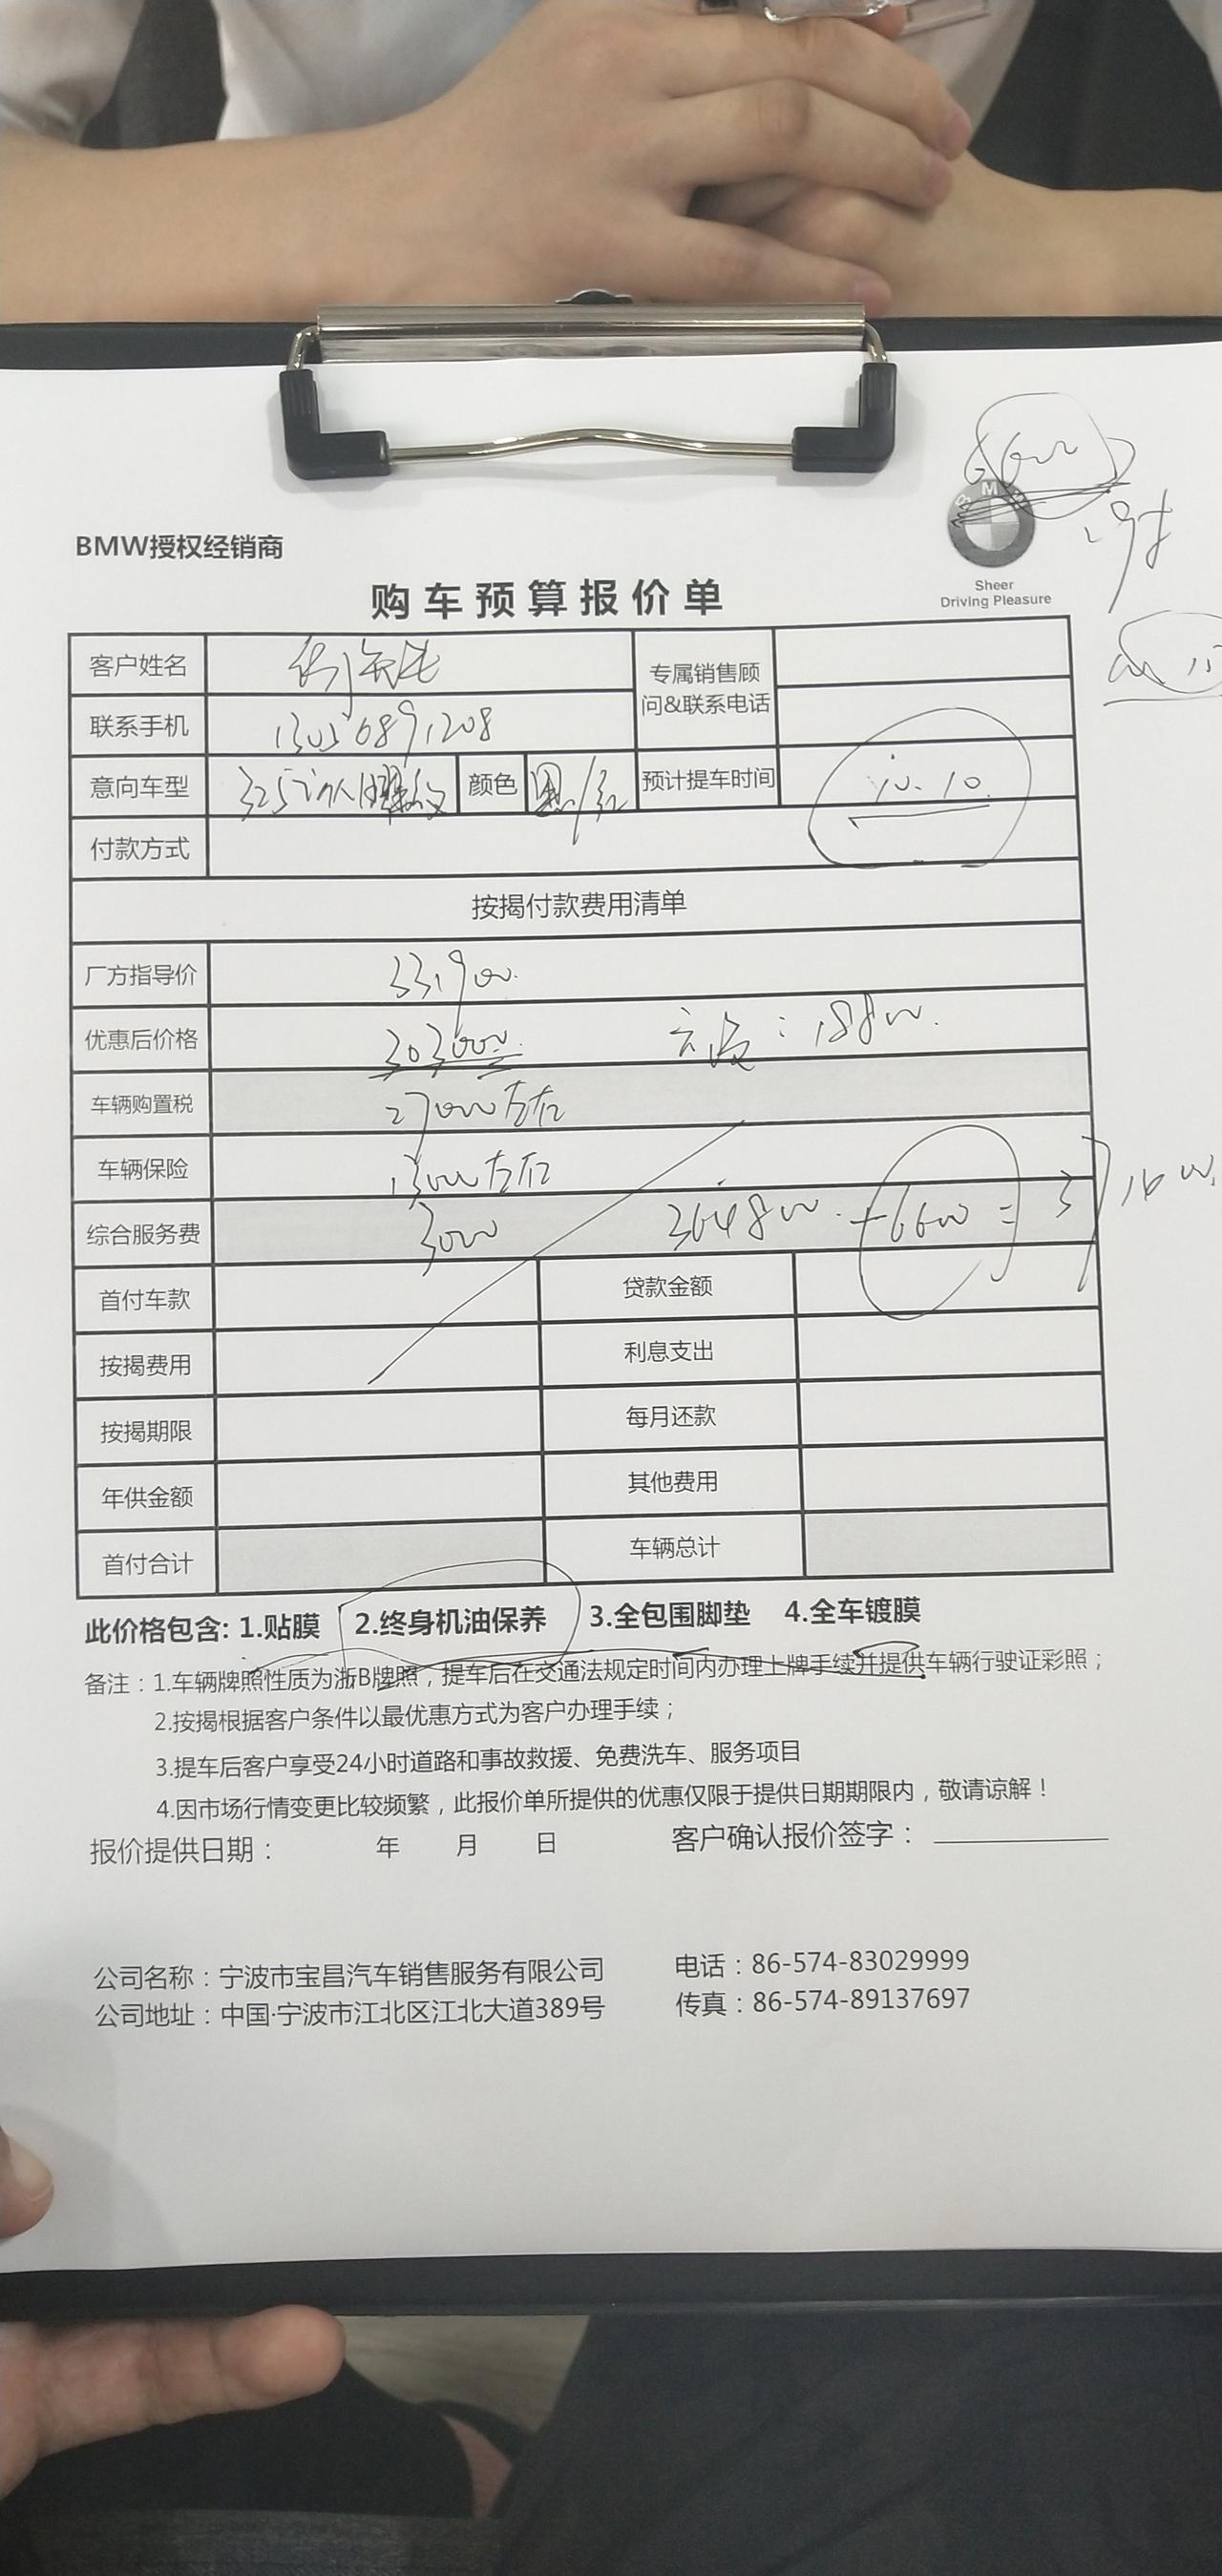 6600
BMW
BMW授权经销商
Sheer
Driving Pleasure
购车预算报价单
客户姓名
专属销售顾
问&联系电话
联系手机 13056891208
意向车型 325 颜色 黑/红 预计提车时间 10.10
付款方式
按揭付款费用清单
厂方指导价 331900
优惠后价格 303000 :18800
车辆购置税 27000左右
车辆保险 13000左右
综合服务费 3000 364800+6600=371400
首付车款 贷款金额
按揭费用 利息支出
按揭期限 每月还款
年供金额 其他费用
首付合计 车辆总计
此价格包含: 1.贴膜 2.终身机油保养 3.全包围脚垫 4.全车镀膜
备注：1.车辆牌照性质为浙B牌照，提车后在交通法规定时间内办理上牌手续并提供车辆行驶证彩照；
2.按揭根据客户条件以最优惠方式为客户办理手续；
3.提车后客户享受24小时道路和事故救援、免费洗车、服务项目
4.因市场行情变更比较频繁，此报价单所提供的优惠仅限于提供日期期限内，敬请谅解！
报价提供日期： 年 月 日 客户确认报价签字：
公司名称：宁波市宝昌汽车销售服务有限公司 电话：86-574-83029999
公司地址：中国·宁波市江北区江北大道389号 传真：86-574-89137697